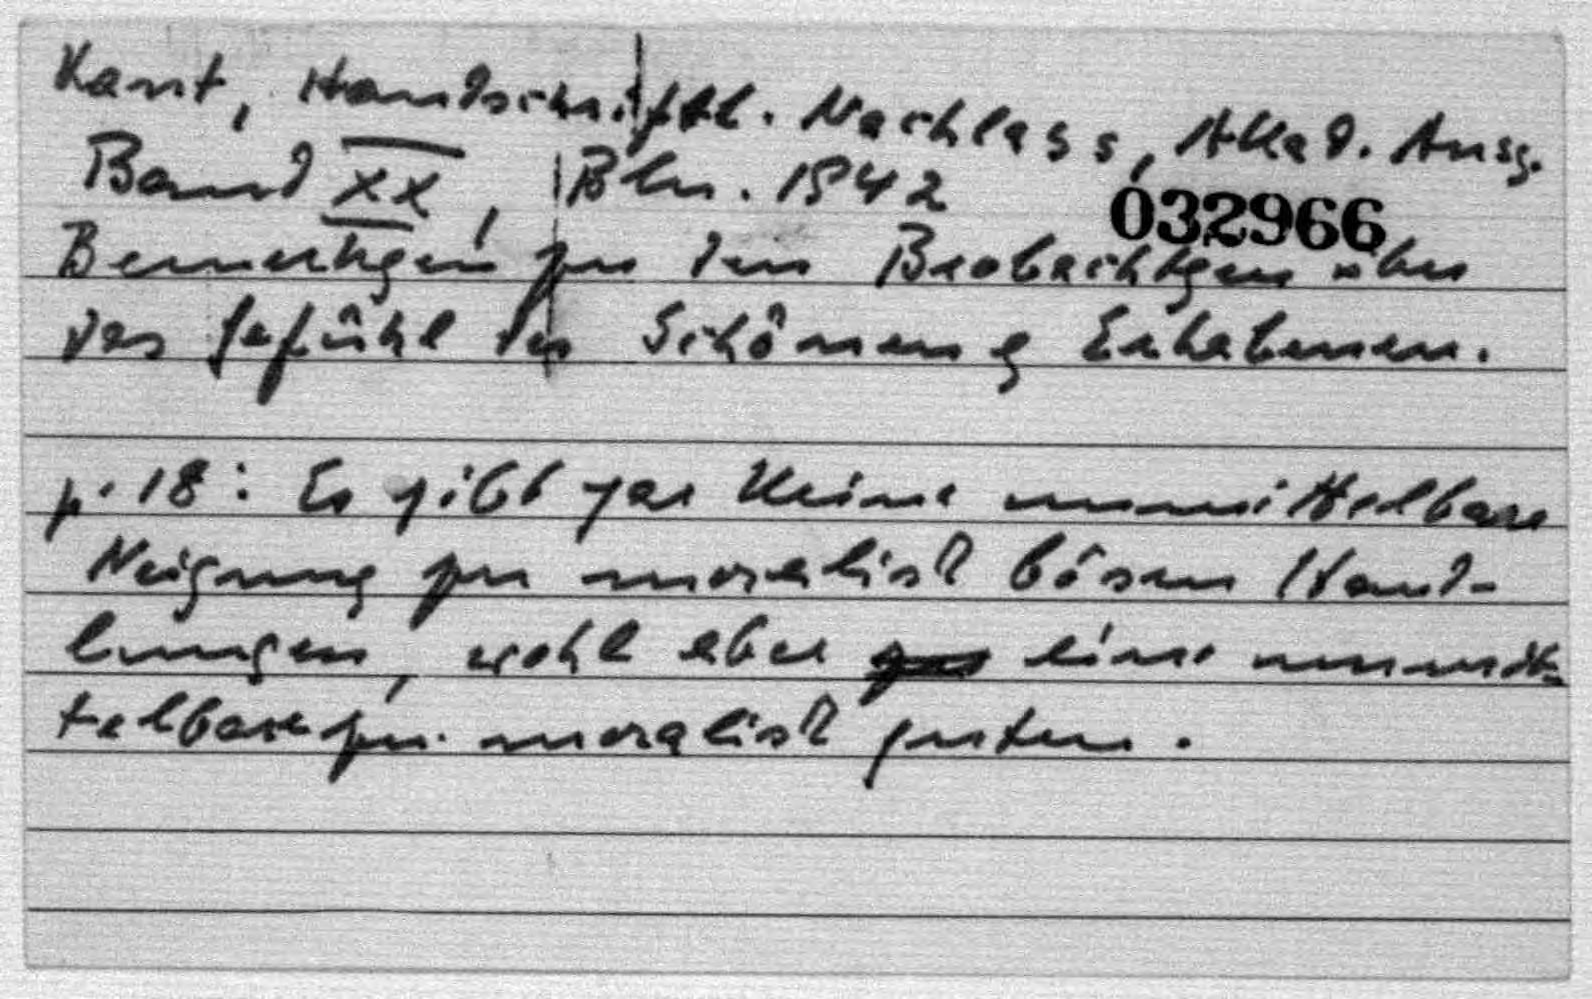 Kant, Handschriftl. Nachlass, Akad. Ausg.
Band XX, Bln. 1942
032966
Bemerkgen zu den Beobachtgen über
das Gefühl des Schönen & Erhabenen.
p. 18: Es gibt gar keine unmittelbare
Neigung zu moralisch bösen Hand-
lungen, wohl aber eine unmit-
telbare zu moralisch guten.